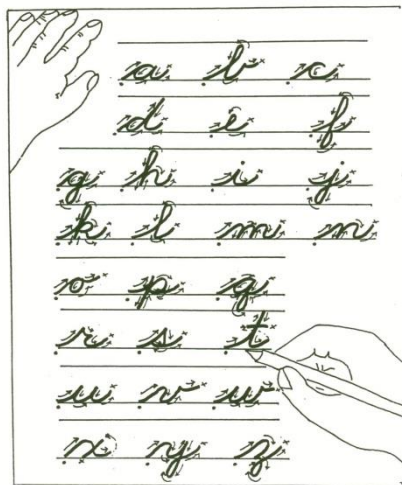 a b c
d e f
g h i j
k l m n
o p q
r s t
u v w
x y z